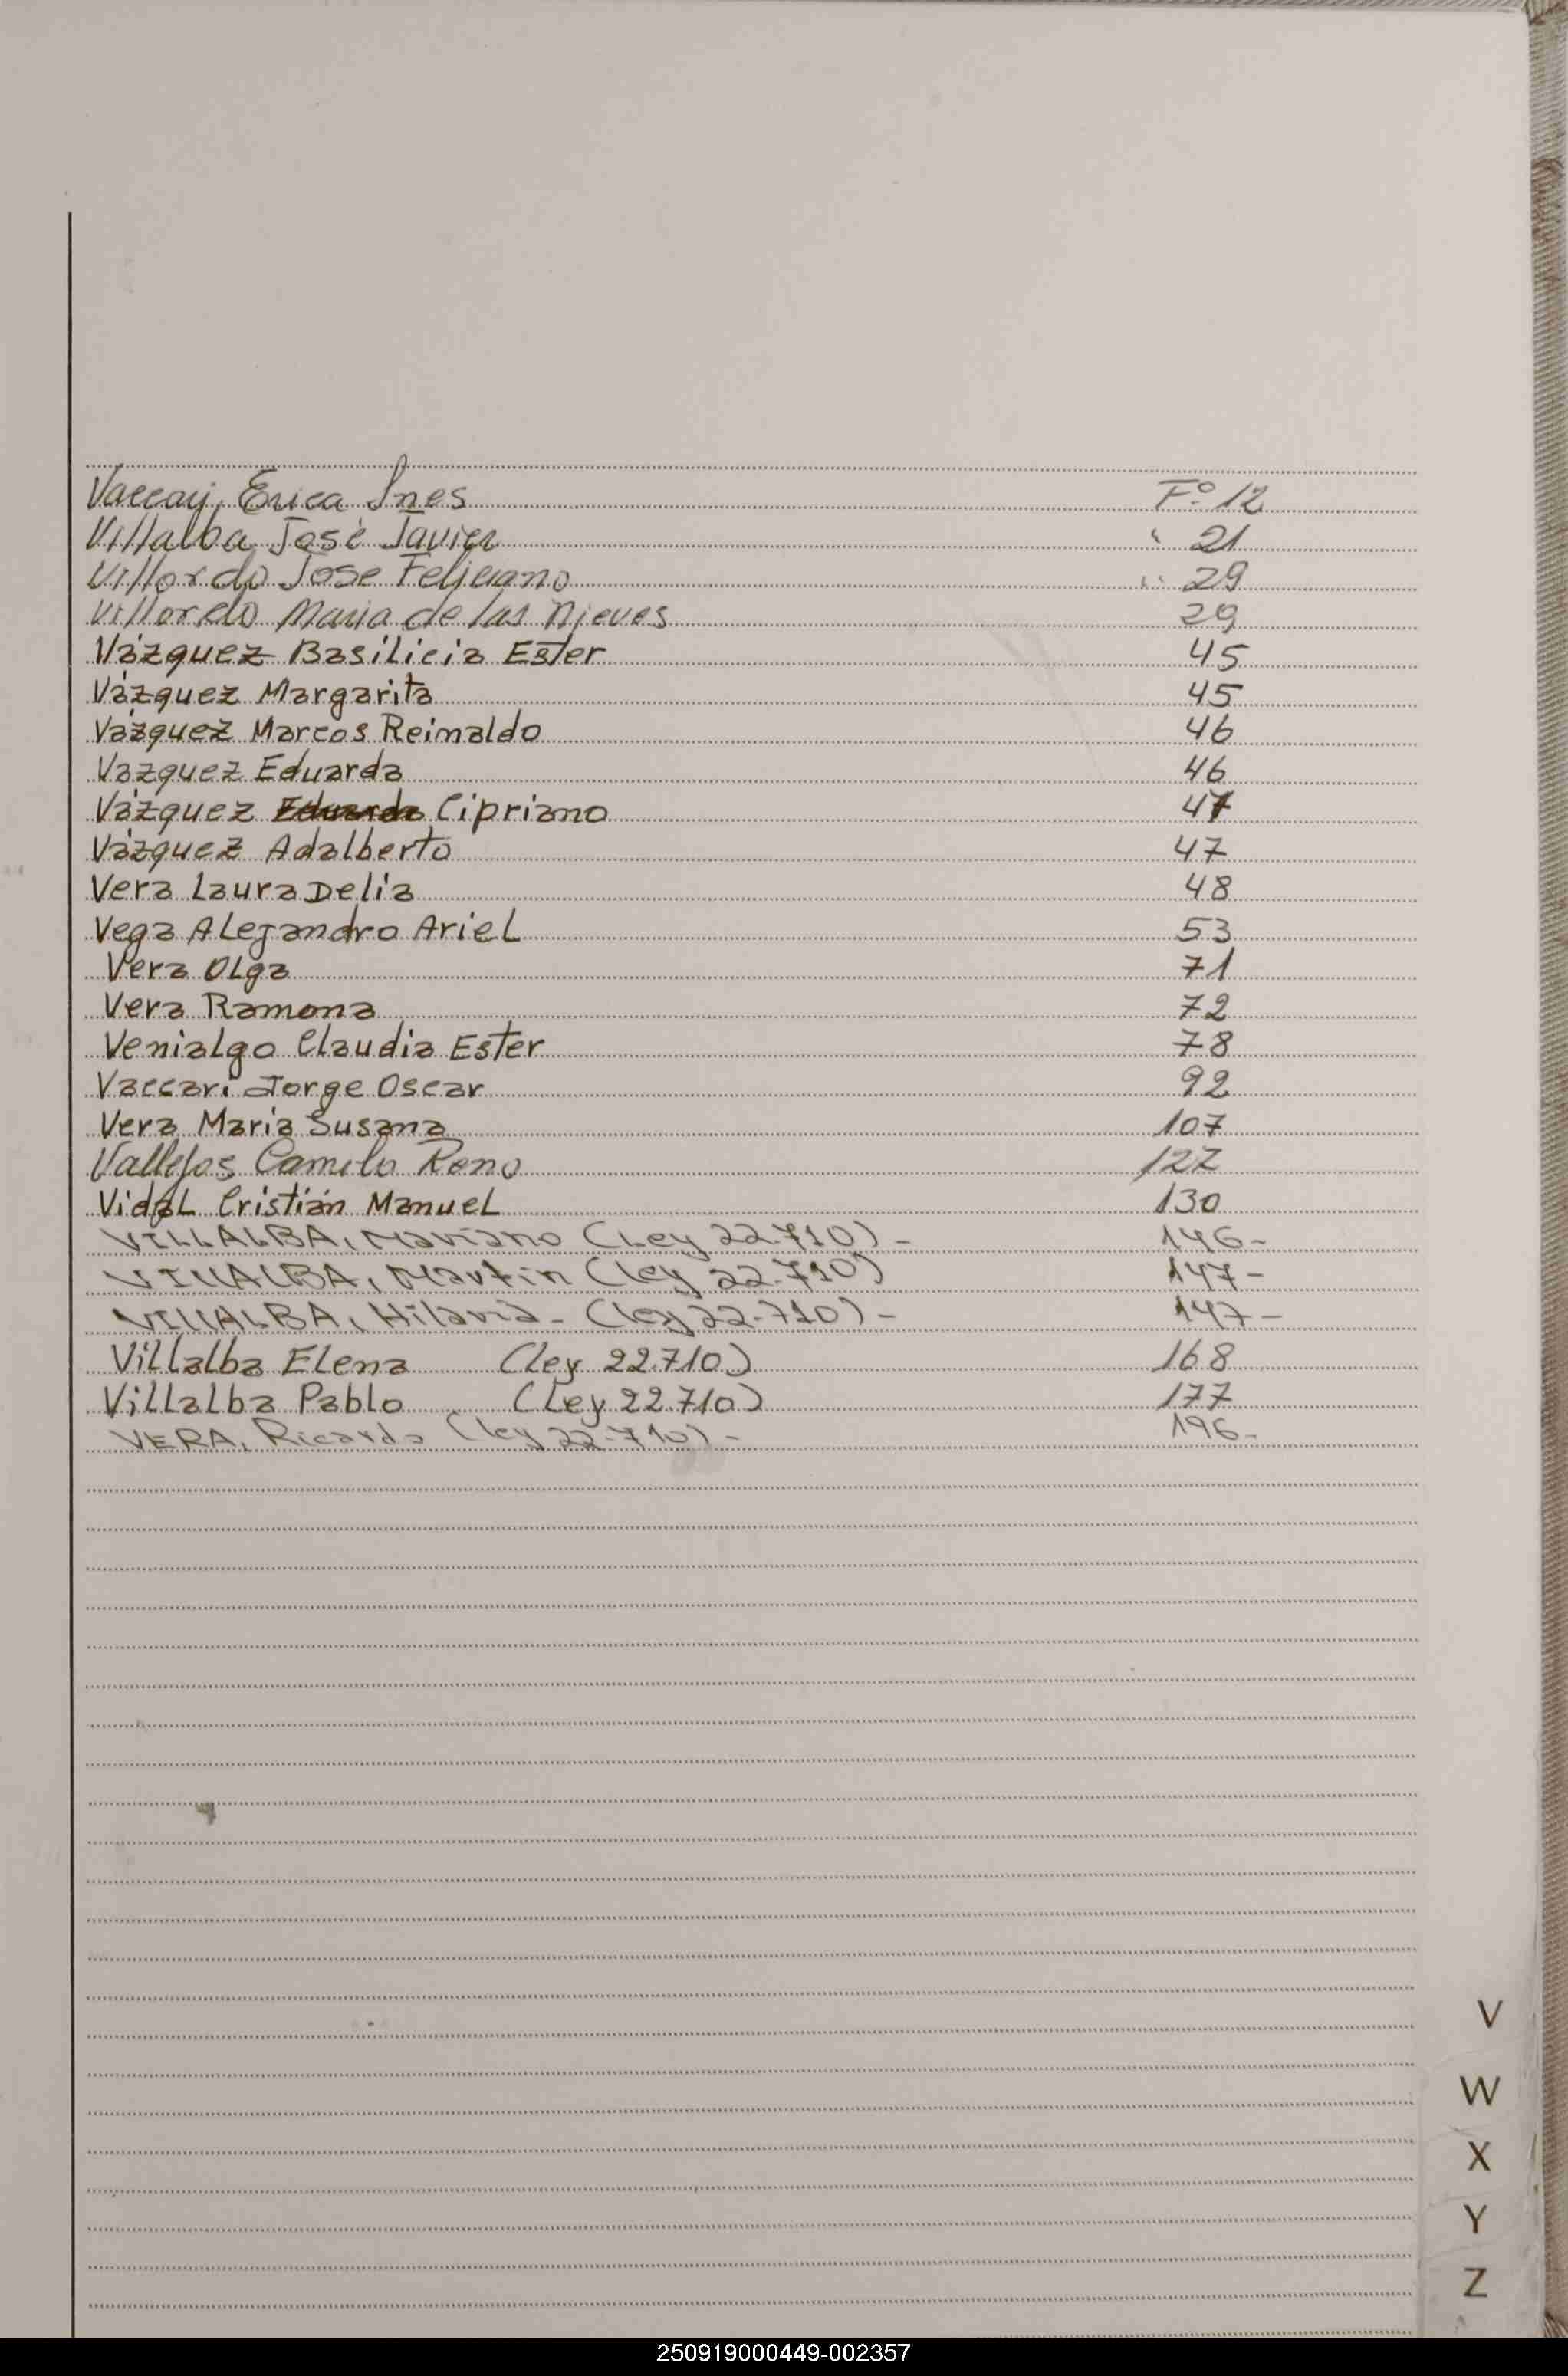 Vaccay, Erica Ines F.º 12
Villalba José Javier " 21
Villordo Jose Feliciano " 29
Villordo Maria de las Nieves 29
Vázquez Basilicia Ester 45
Vázquez Margarita 45
Vázquez Marcos Reimaldo 46
Vazquez Eduarda 46
Vázquez Eduarda Cipriano 47
Vázquez Adalberto 47
Vera Laura Delia 48
Vega Alejandro Ariel 53
Vera Olga 71
Vera Ramona 72
Venialgo Claudia Ester 78
Vaccari Jorge Oscar 92
Vera Maria Susana 107
Vallejos Camilo Reno 127
Vidal Cristián Manuel 130
VILLALBA, Mariano (Ley 22.710) - 146-
VILLALBA, Martin (ley 22.710) 147-
VILLALBA, Hilaria - (ley 22.710) - 147-
Villalba Elena (ley 22.710) 168
Villalba Pablo (Ley 22.710) 177
VERA, Ricardo (ley 22.710) - 196-
V
W
X
Y
Z
250919000449-002357